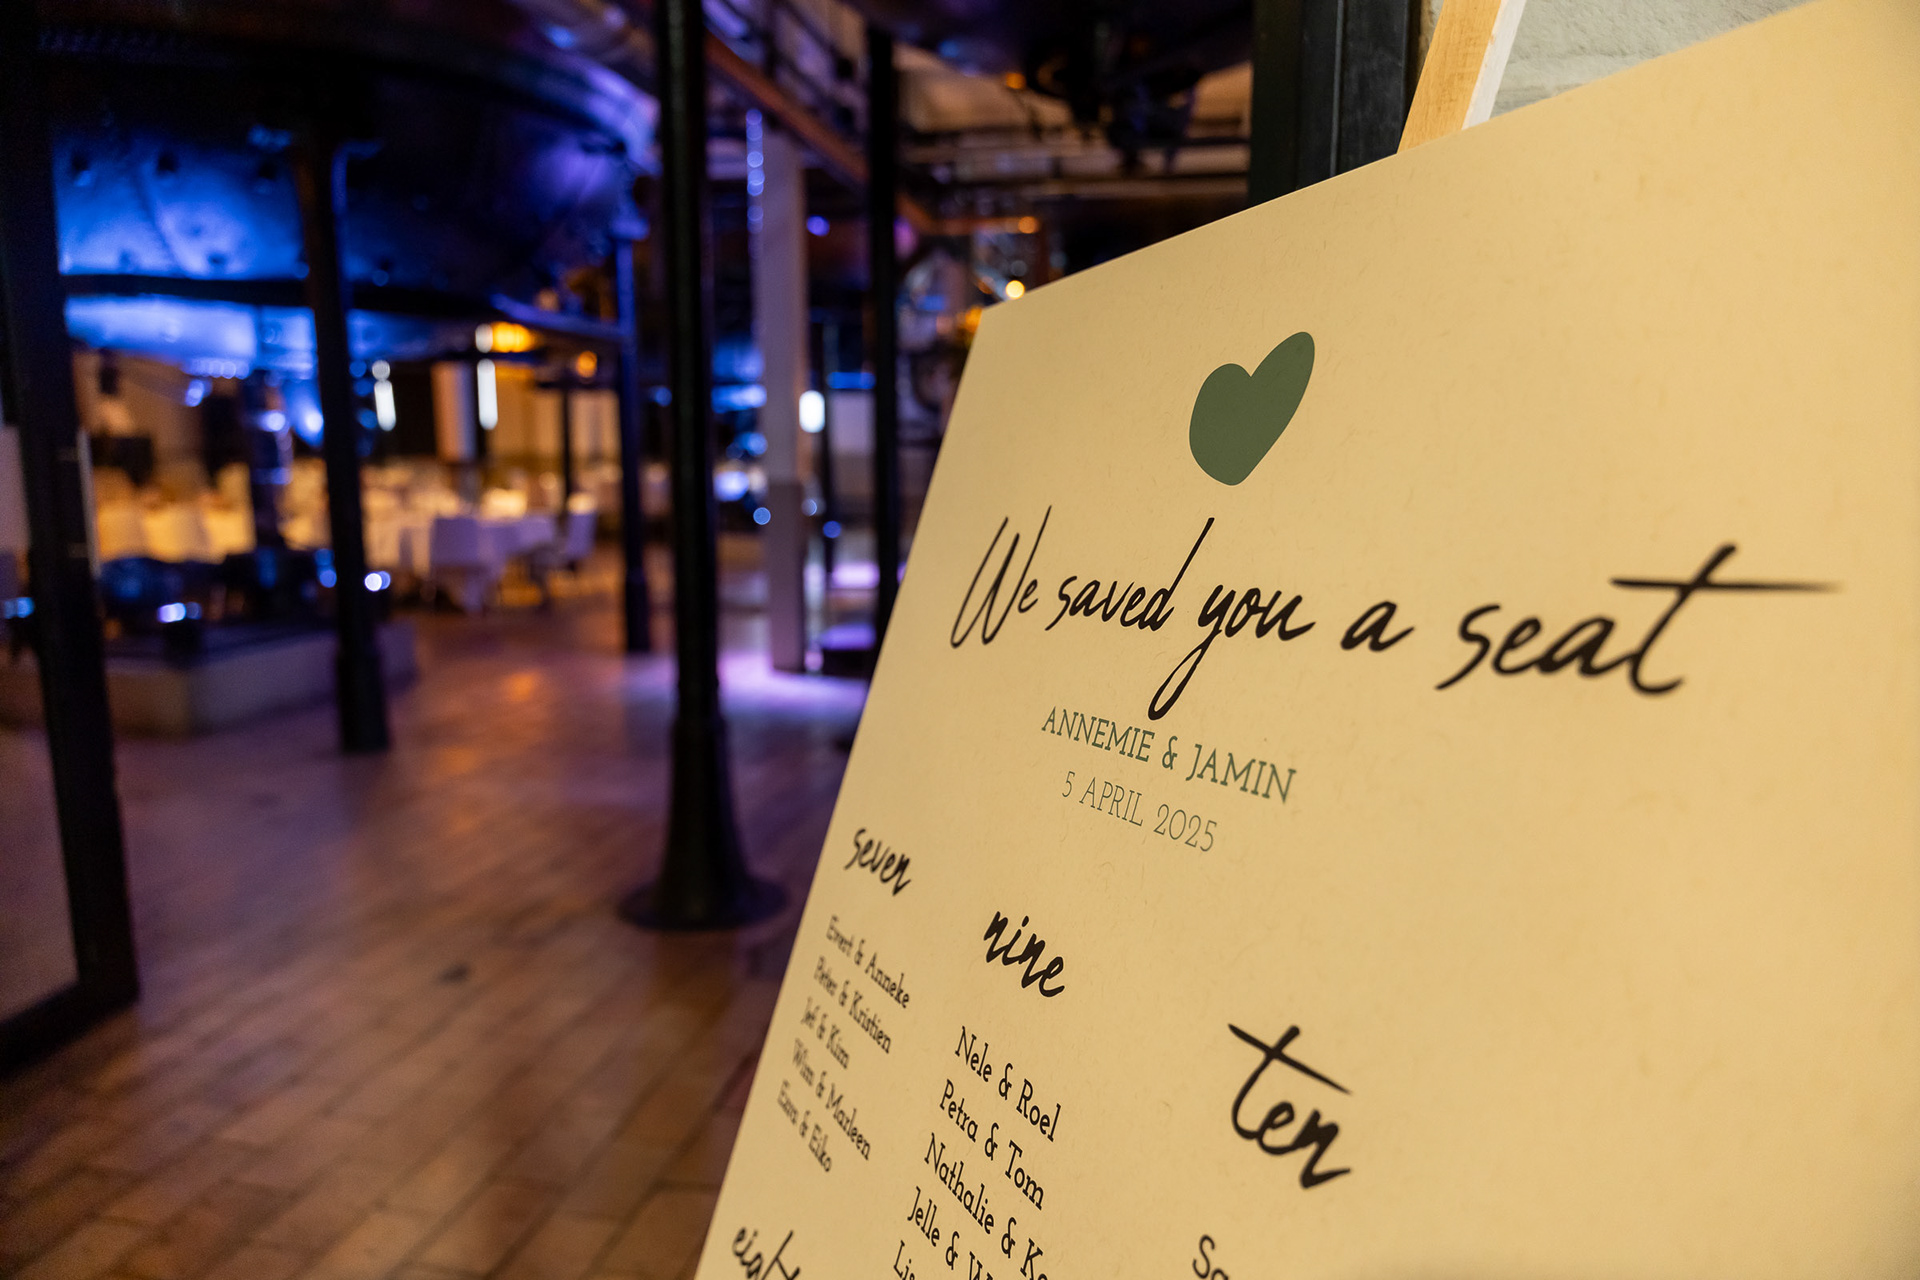 We saved you a seat
ANNEMIE & JAMIN
5 APRIL 2025
seven
Evert & Anneke
Peter & Kristien
Jef & Kim
Wim & Marleen
& Eiko
eight
nine
Nele & Roel
Petra & Tom
Nathalie &
Jelle &
ten